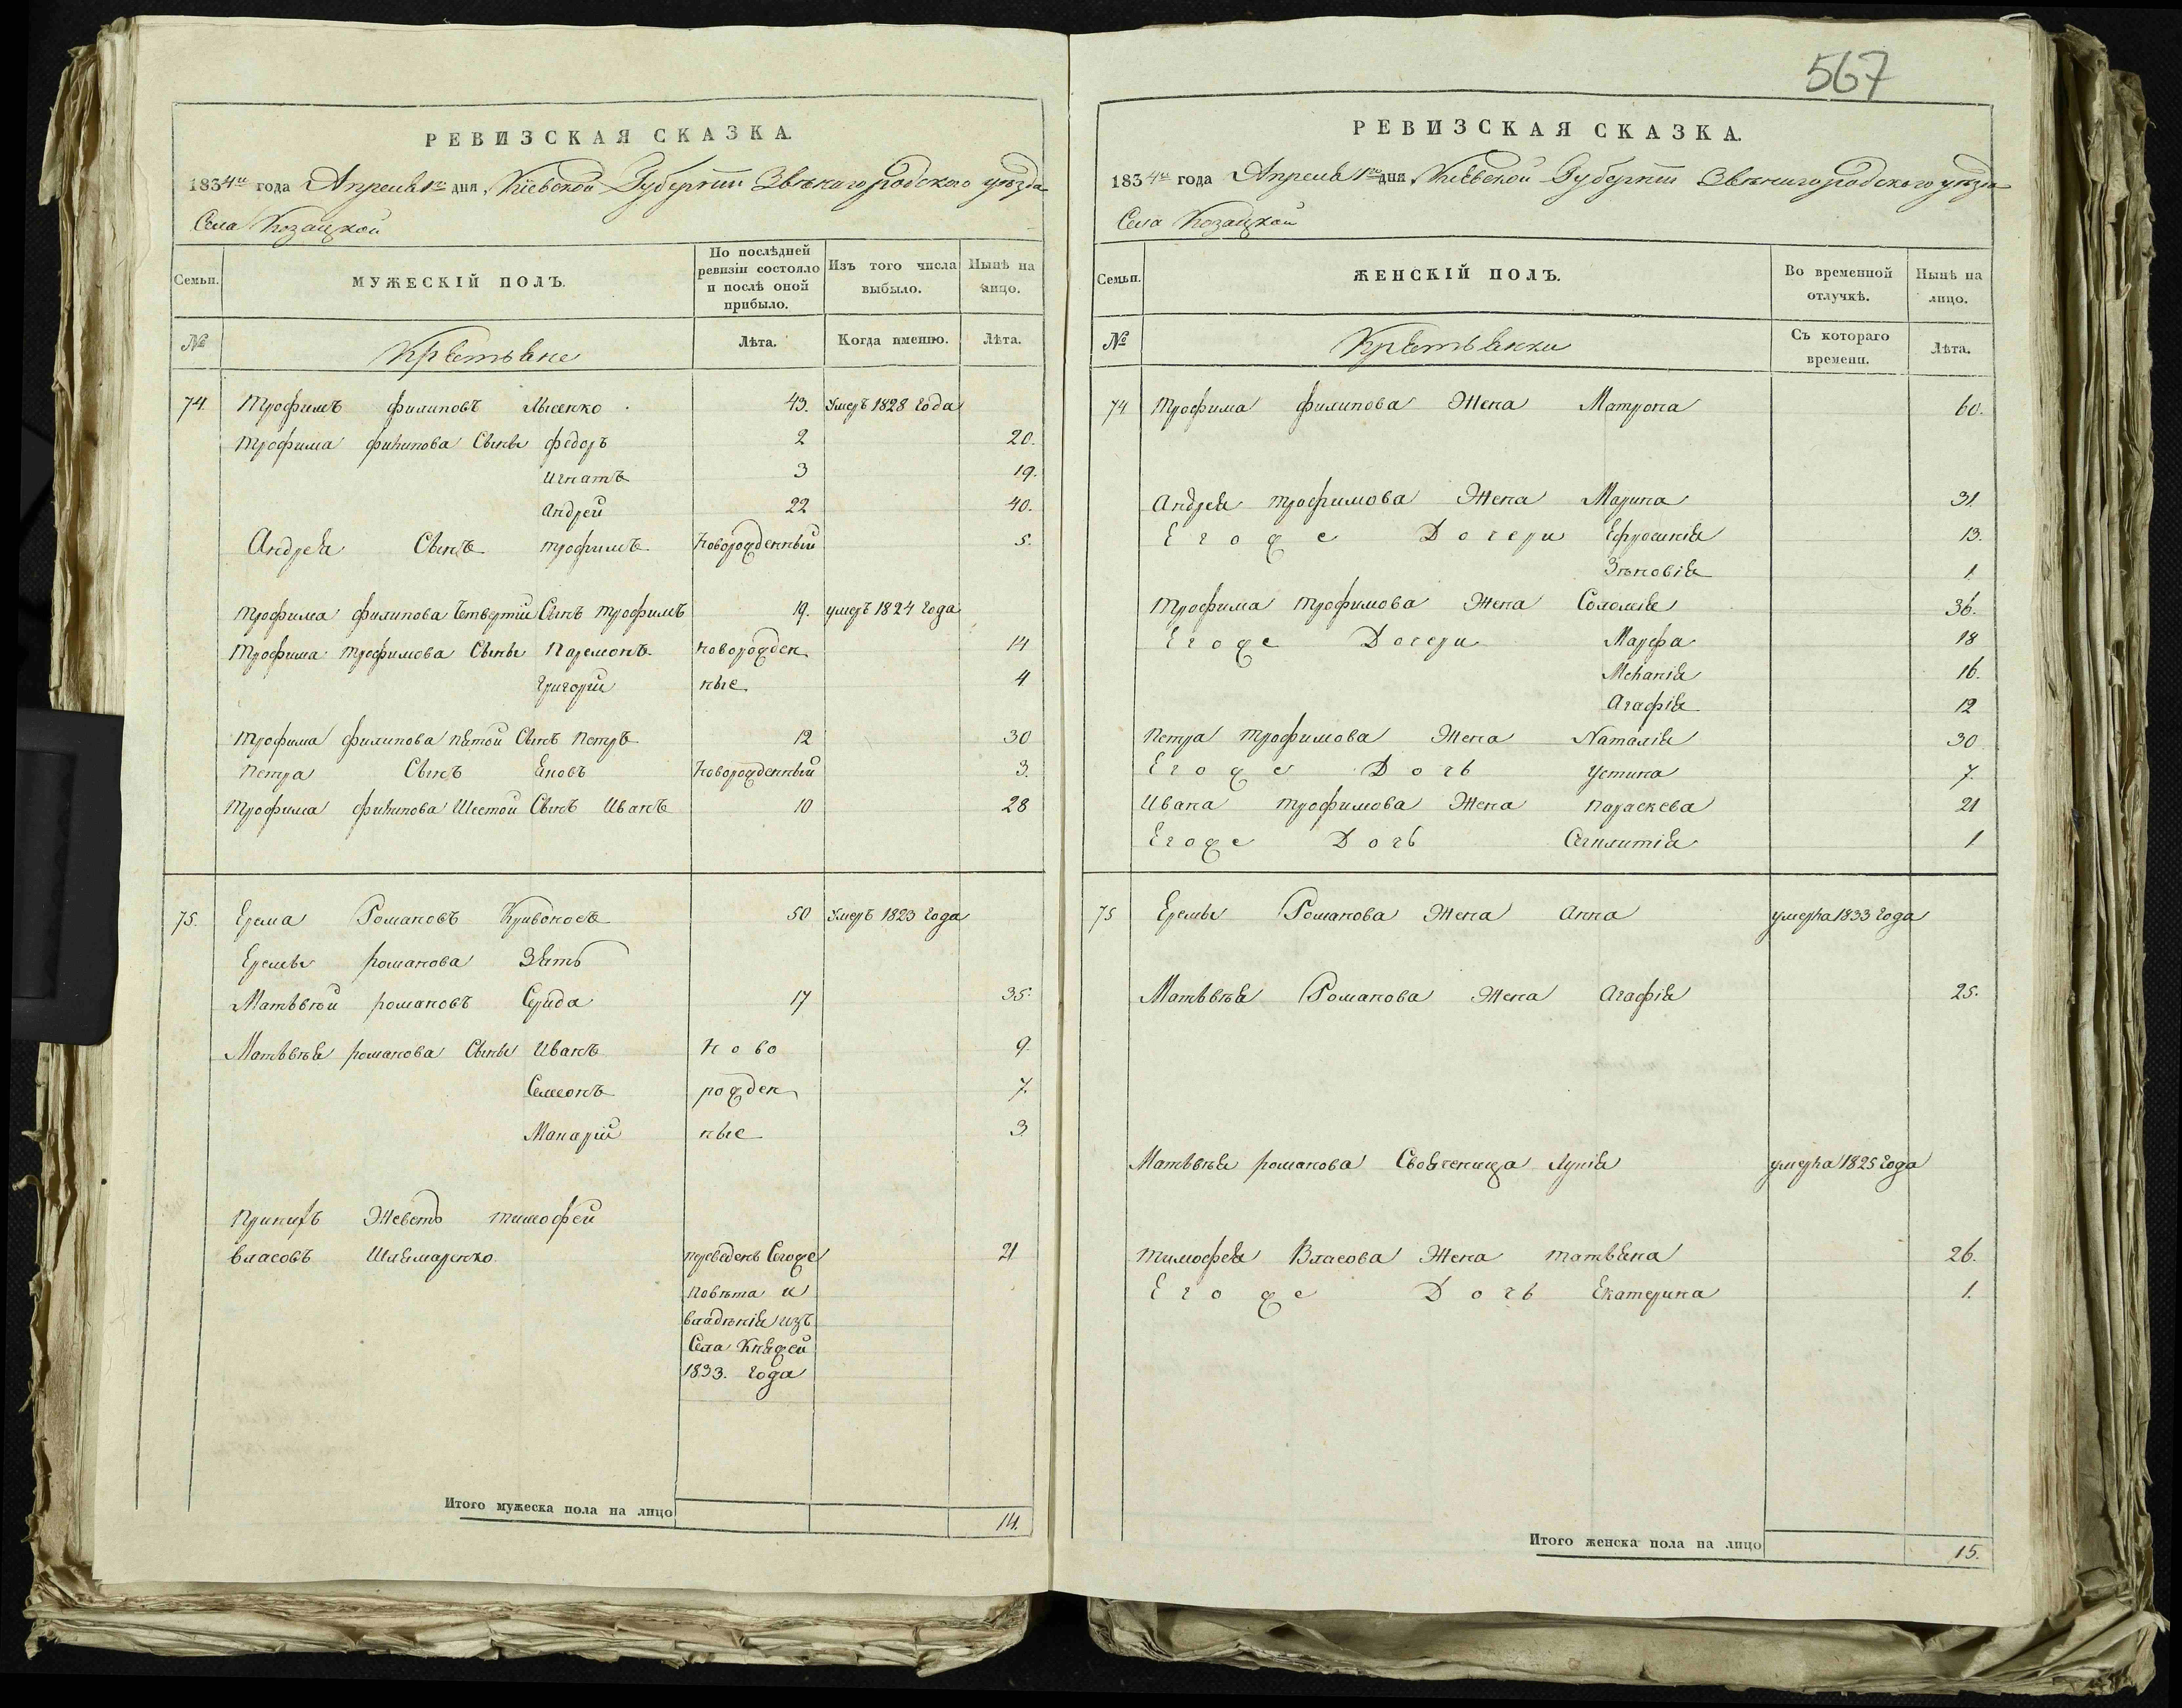 567
РЕВИЗСКАЯ СКАЗКА.
1834го года Апреля 1го дня, Кіевской Губерніи Звѣнигородского уѣзда
Села Козацкой
Семьи.
МУЖЕСКІЙ ПОЛЪ.
По послѣдней ревизіи состояло и послѣ оной прибыло.
Изъ того числа выбыло.
Нынѣ на лицо.
№
Крестьяне
Лѣта.
Когда имянно.
Лѣта.
74. Трофимъ филиповъ Лысенко 43. Умеръ 1828 года
Трофима филипова Сыны федоръ 2 20.
Игнатъ 3 19.
Андрей 22 40.
Андрея Сынъ трофимъ Новорожденный 5.
Трофима филипова Четвертій Сынъ трофимъ 19. умеръ 1824 года
Трофима трофимова Сыны Паремонъ новорожден 14
Григорій ные 4
Трофима филипова пятой Сынъ Петръ 12 30
Петра Сынъ Яковъ Новорожденный 3.
Трофима филипова Шестой Сынъ Иванъ 10 28
75. Ерема Романовъ Кривоносъ 50 Умеръ 1823 года
Еремы романова Зять
Матьвѣй романовъ Середа 17 35.
Матьвѣя романова Сыны Иванъ Ново 9.
Семеонъ рожден 7.
Макарій ные 3
Принятъ Жеветъ тимофей
власовъ Шляматенко переведенъ Сегоже 21
повѣта и
владѣнія изъ
Села Княжей
1833. года
Итого мужеска пола на лицо 14.
РЕВИЗСКАЯ СКАЗКА.
1834го года Апреля 1го дня, Кіевской Губерніи Звѣнигородского уѣзда
Села Козацкой
Семьи.
ЖЕНСКІЙ ПОЛЪ.
Во временной отлучкѣ.
Нынѣ на лицо.
№
Крестьянки
Съ котораго времени.
Лѣта.
74 Трофима филипова Жена Матрона 60.
Андрея трофимова Жена Марина 31.
Егоже Дочери Ефросинія 13.
Зѣновія 1
Трофима трофимова Жена Соломія 36.
Егоже Дочери Марфа 18
Меланія 16.
Агафія 12
Петра Трофимова Жена Наталія 30
Егоже Дочь Устина 7.
Ивана трофимова Жена параскева 21
Егоже Дочь 1
75 Еремы Романова Жена Анна умерла 1833 года
Матьвѣя Романова Жена Агафія 25.
Матьвѣя романова Своячениця Лукія умерла 1825 года
Тимофея Власова Жена татьяна 26.
Егоже Дочь Екатерина 1.
Итого женска пола на лицо 15.